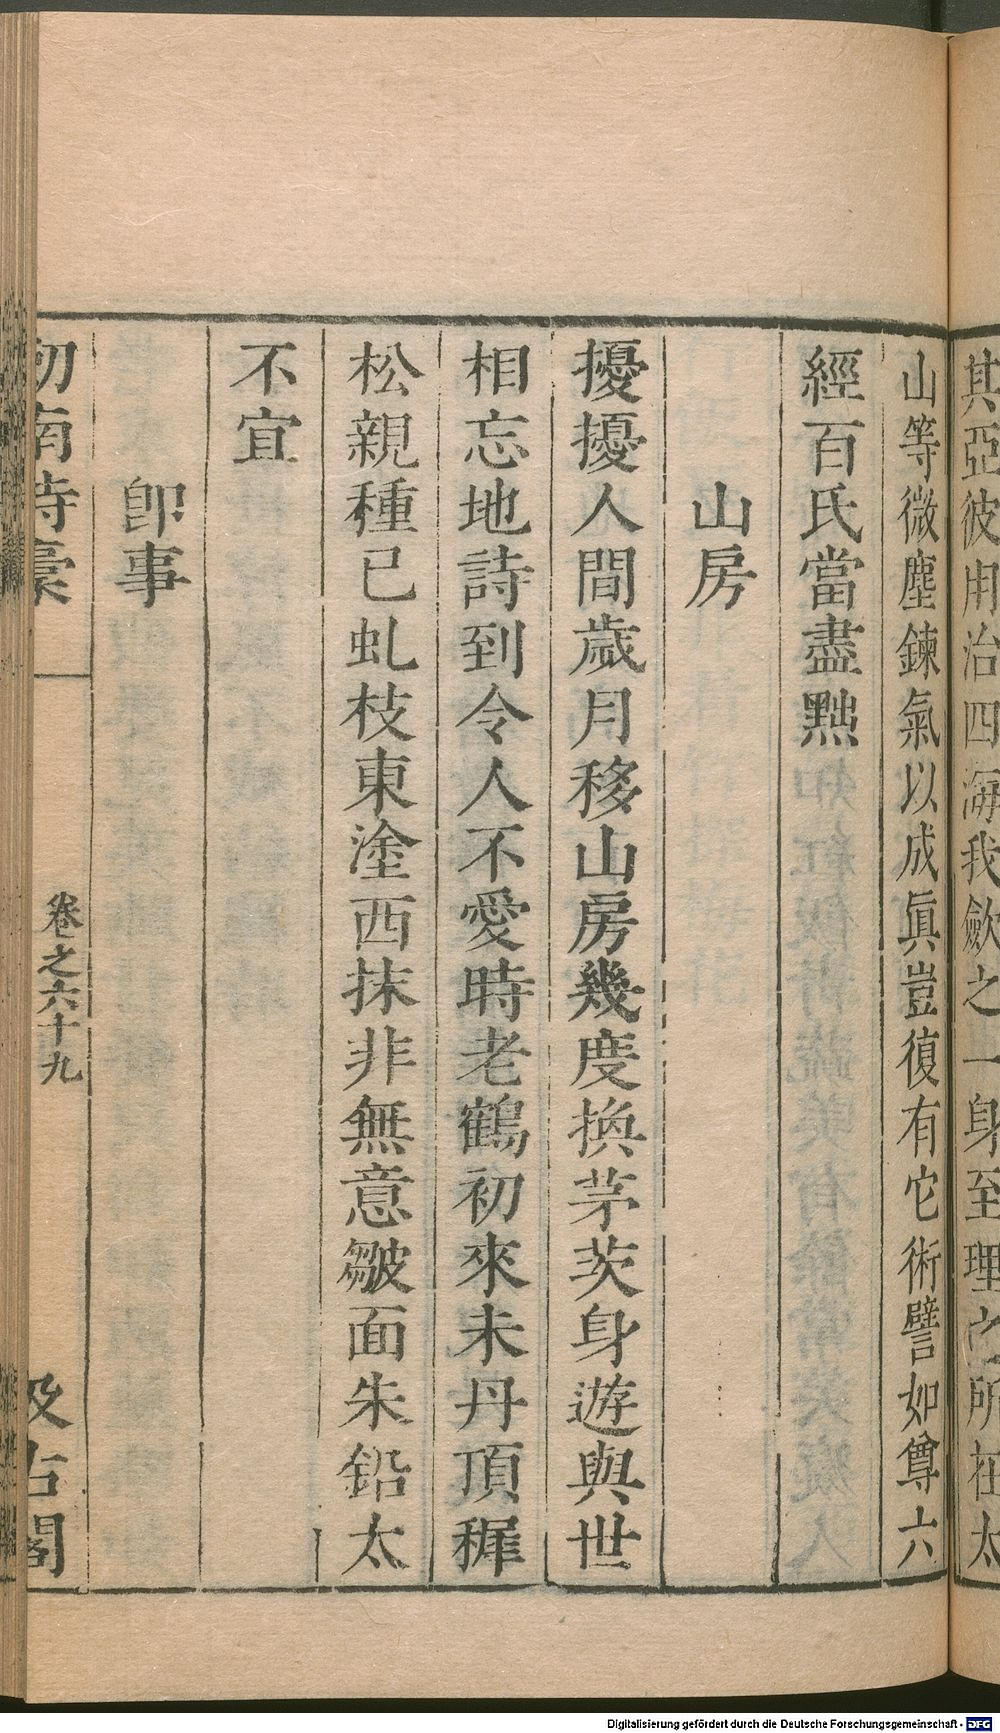 其亞彼用治四海我斂之一身至理之所在太
山等微塵鍊氣以成眞豈復有它術譬如尊六
經百氏當盡黜
山房
擾擾人間歲月移山房幾度換茅茨身遊與世
相忘地詩到令人不愛時老鶴初來未丹頂穉
松親種已虬枝東塗西抹非無意皺面朱鉛太
不宜
卽事
劒南詩稾
卷之六十九
汲古閣
Digitalisierung gefördert durch die Deutsche Forschungsgemeinschaft - DFG